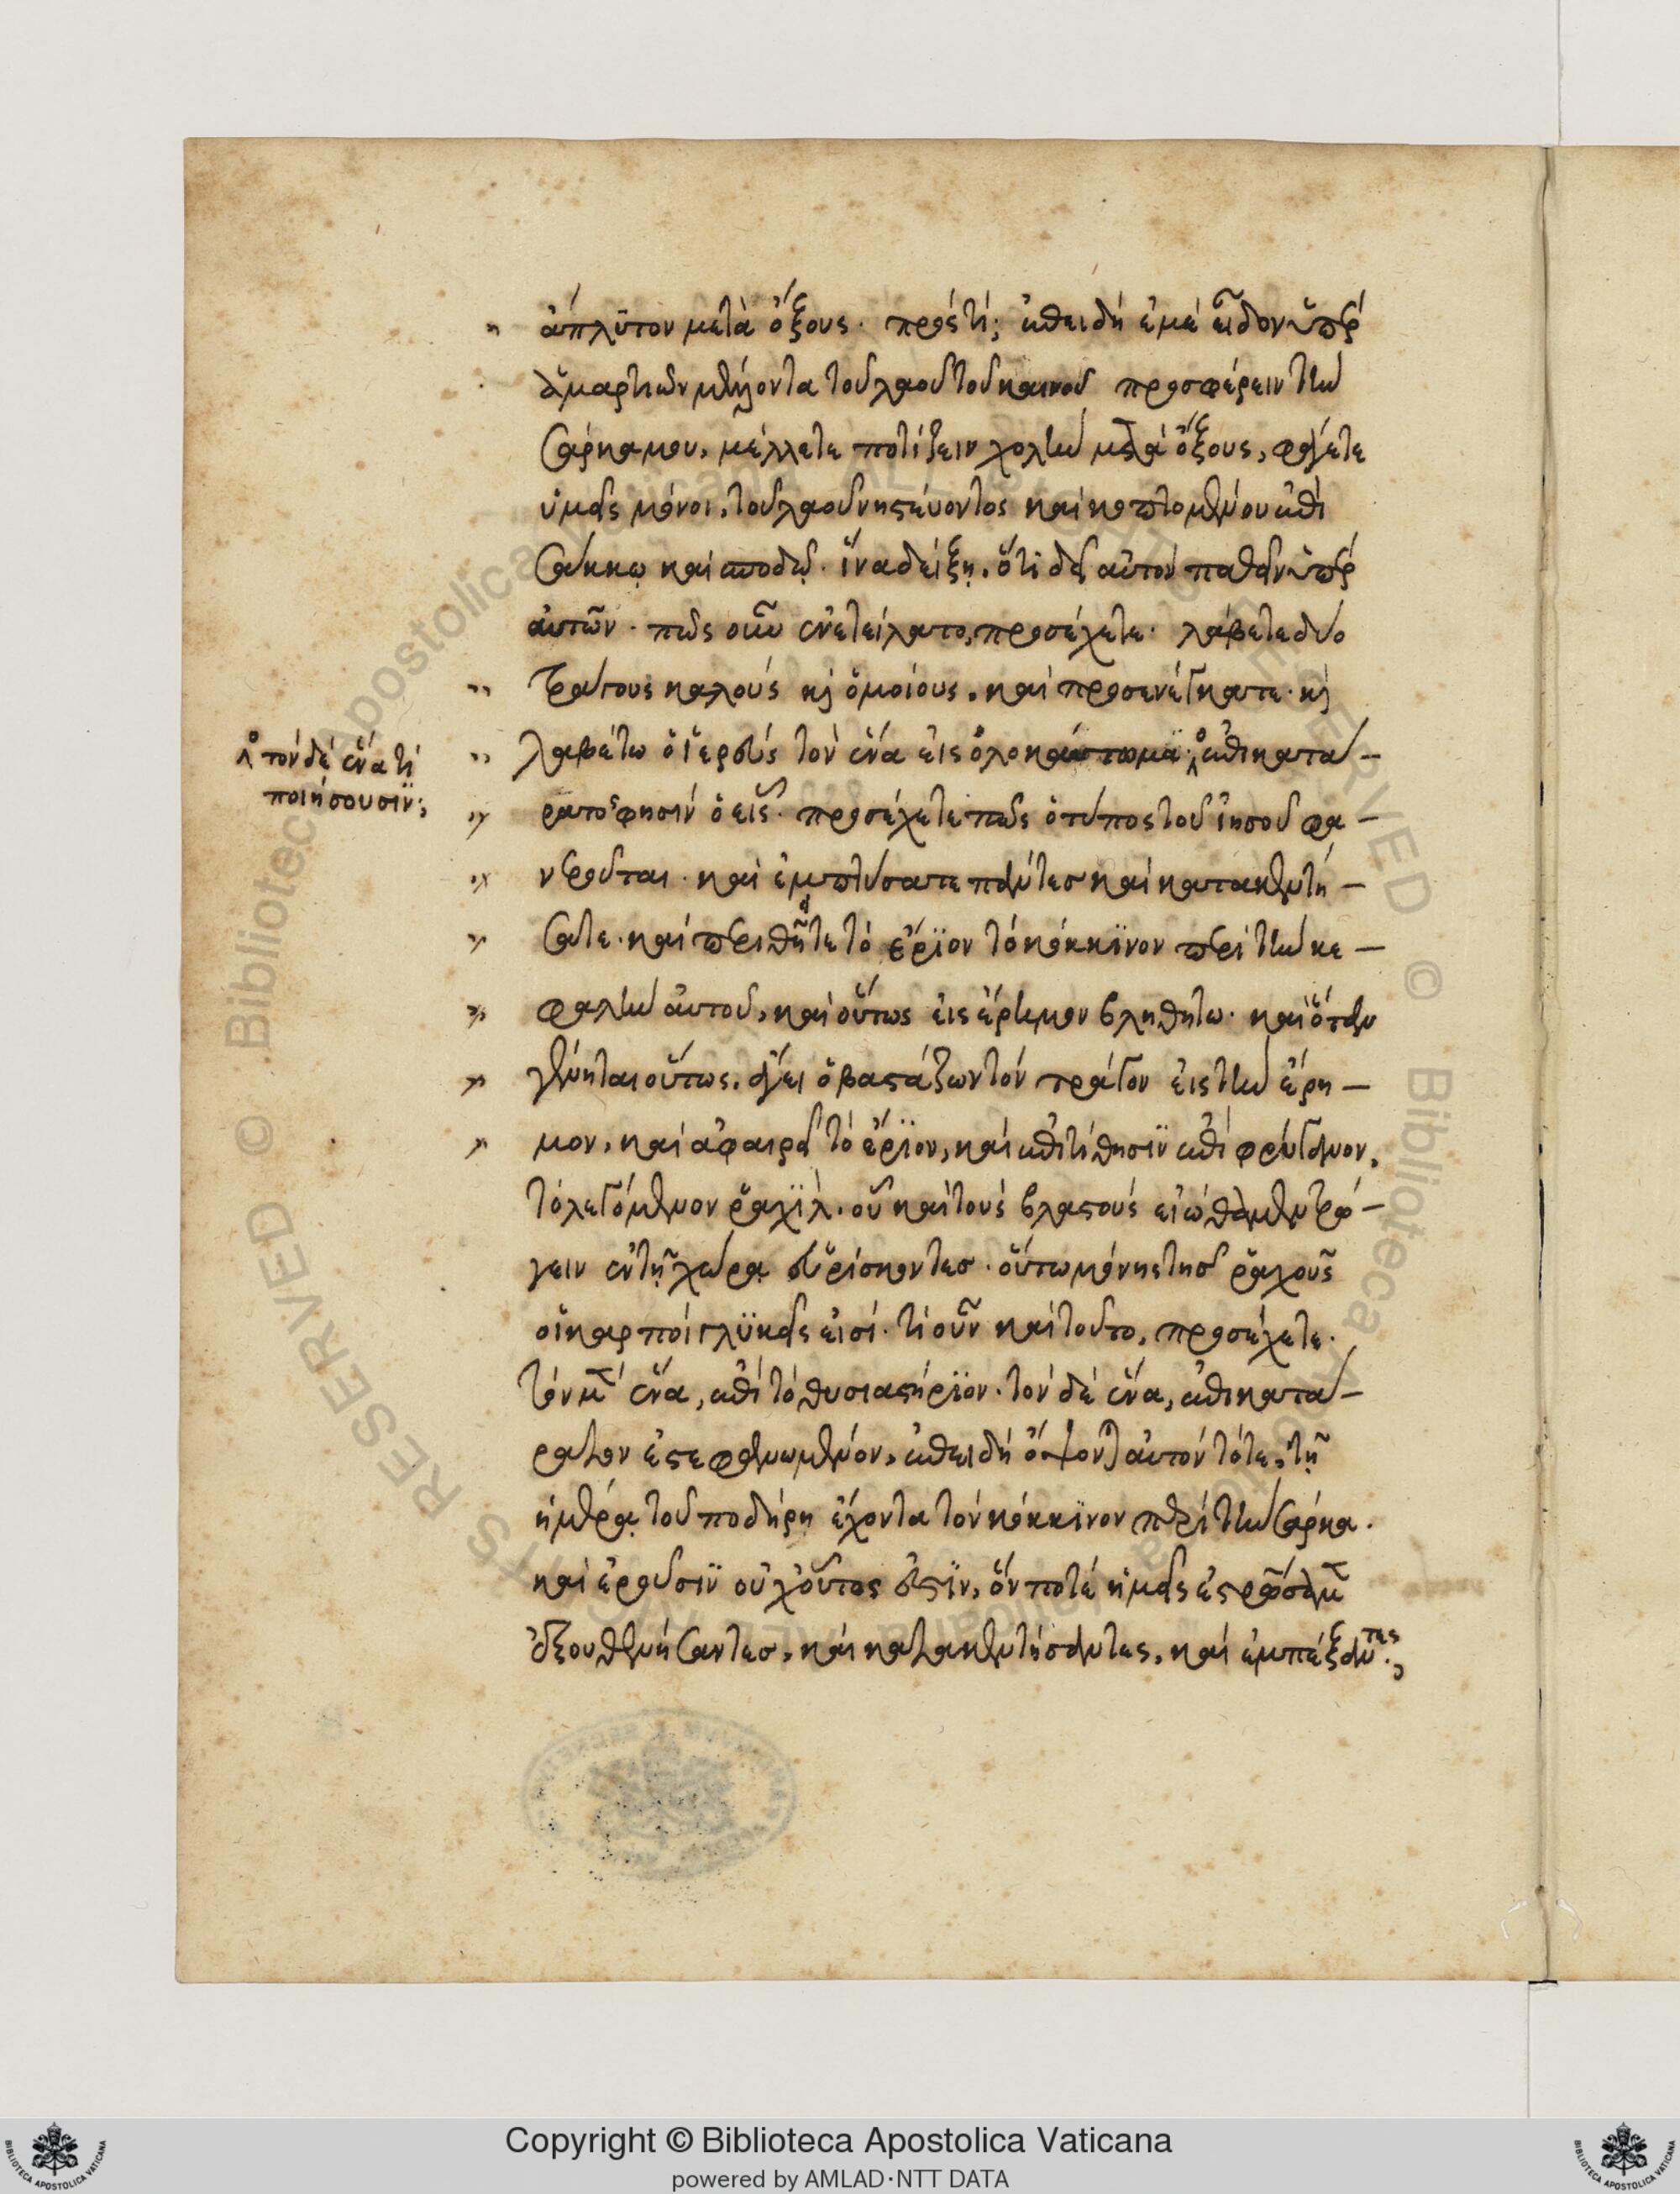 ἄπλυτον μετὰ ὄξους. πρὸς τί; ἐπειδὴ ἐμὲ εἶδον ὑπὲρ
ἁμαρτιῶν μέλλοντα τοῦ λαοῦ τοῦ καινοῦ προσφέρειν τὴν
σάρκα μου, μέλλετε ποτίζειν χολὴν μετὰ ὄξους, φάγετε
ὑμεῖς μόνοι, τοῦ λαοῦ νηστεύοντος καὶ κοπτομένου ἐπὶ
σάκκῳ καὶ σποδῷ. ἵνα δείξῃ, ὅτι δεῖ αὐτὸν παθεῖν ὑπὲρ
αὐτῶν. πῶς οὖν ἐνετείλατο, προσέχετε. λάβετε δύο
τράγους καλοὺς καὶ ὁμοίους, καὶ προσενέγκατε. καὶ
λαβέτω ὁ ἱερεὺς τὸν ἕνα εἰς ὁλοκαύτωμα. ἐπικατά-
τὸν δὲ ἕνα τί
ποιήσουσιν;
ρατος φησὶν ὁ εἷς. προσέχετε πῶς ὁ τύπος τοῦ ἰησοῦ φα-
νεροῦται. καὶ ἐμπτύσατε πάντες καὶ κατακεντή-
σατε. καὶ περιθῆτε τὸ ἔριον τὸ κόκκινον περὶ τὴν κε-
φαλὴν αὐτοῦ, καὶ οὕτως εἰς ἔρημον βληθήτω. καὶ ὅταν
γένηται οὕτως, ἄγει ὁ βαστάζων τὸν τράγον εἰς τὴν ἔρη-
μον, καὶ ἀφαιρεῖ τὸ ἔριον, καὶ ἐπιτίθησιν ἐπὶ φρύγανον,
τὸ λεγόμενον ῥαχὶλ. οὗ καὶ τοὺς βλαστοὺς εἰώθαμεν τρώ-
γειν ἐν τῇ χώρᾳ εὑρίσκοντες. οὕτω μόνης τῆς ῥάχους
οἱ καρποὶ γλυκεῖς εἰσί. τί οὖν καὶ τοῦτο, προσέχετε.
τὸν μὲν ἕνα, ἐπὶ τὸ θυσιαστήριον. τὸν δὲ ἕνα, ἐπικατά-
ρατον ἐστεφανωμένον, ἐπειδὴ ὄψονται αὐτὸν τότε, τῇ
ἡμέρᾳ τοῦ ποδήρη ἔχοντα τὸν κόκκινον περὶ τὴν σάρκα.
καὶ ἐροῦσιν οὐχ οὗτος ἐστὶν, ὅν ποτε ἡμεῖς ἐσταυρώσαμεν
ἐξουθενήσαντες, καὶ κατακεντήσαντες, καὶ ἐμπαίξαντες;
Copyright © Biblioteca Apostolica Vaticana
powered by AMLAD·NTT DATA